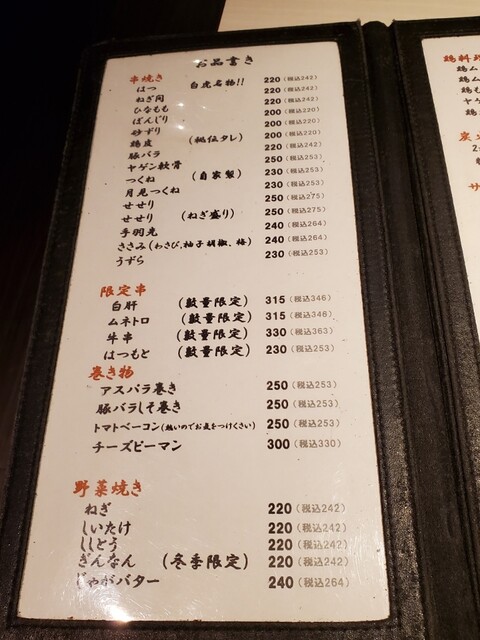 お品書き
串焼き
はつ 白虎名物!! 220(税込242)
ねぎ間 220(税込242)
ひなもも 220(税込242)
ぼんじり 200(税込220)
砂ずり 200(税込220)
鶏皮 (秘伝タレ) 200(税込220)
豚バラ 220(税込242)
ヤゲン軟骨 250(税込253)
つくね (自家製) 230(税込253)
月見つくね 230(税込253)
せせり 250(税込275)
せせり (ねぎ盛り) 250(税込275)
手羽先 240(税込264)
ささみ(わさび、柚子胡椒、梅) 240(税込264)
うずら 230(税込253)
限定串
白肝 (数量限定) 315(税込346)
ムネトロ (数量限定) 315(税込346)
牛串 (数量限定) 330(税込363)
はつもと (数量限定) 230(税込253)
巻き物
アスパラ巻き 250(税込253)
豚バラしそ巻き 250(税込253)
トマトベーコン(熱いのでお気をつけくさい) 250(税込253)
チーズピーマン 300(税込330)
野菜焼き
ねぎ 220(税込242)
しいたけ 220(税込242)
ししとう 220(税込242)
ぎんなん (冬季限定) 220(税込242)
じゃがバター 240(税込264)
鶏料理
鶏ム
鶏ム
鶏も
ヤゲ